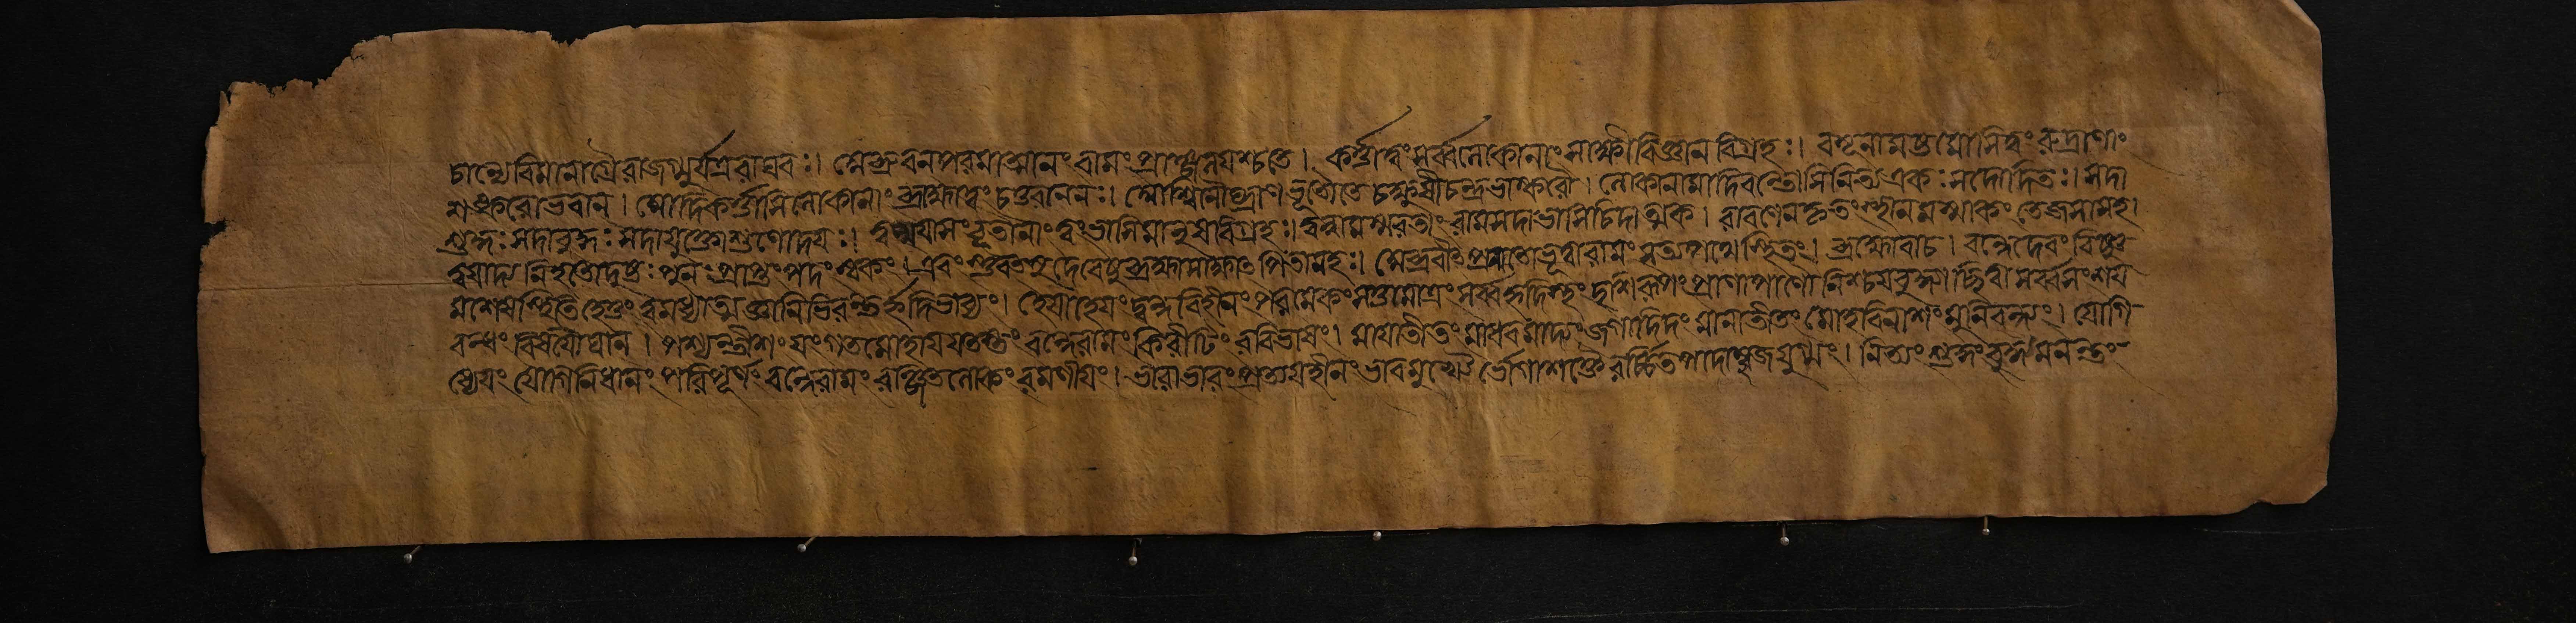 চান্যে বিমানাগ্রৈরাজগ্মুর্যত্ররাঘবঃ। অব্রুবনপরমাত্মানং রামং প্রাঞ্জলয়শ্চতে। কর্ত্তাত্বং সর্ব্বলোকানাং সাক্ষীবিজ্ঞানবিগ্রহঃ। বসূনামষ্টমোসিত্বং রুদ্রাণাং
শঙ্করোভবান। আদিকর্ত্তাসি লোকানাং ব্রহ্মাত্বং চতুরাননঃ। অশ্বিনৌঘ্রাণভূতৌতে চক্ষুষীচন্দ্রভাস্করৌ। লোকানামাদিরন্তোসি নিত্য একঃ সদোদিতঃ। সদা
শুদ্ধঃ সদাবুদ্ধঃ সদামুক্তোগুণোদয়ঃ। ত্বন্মায়াসংবৃতানাং ত্বং ভাসিমানুষবিগ্রহঃ। ত্বন্নামস্মরতাং রাম সদাভাসিচিদাত্মক। রাবণেনহৃতংস্থানমস্মাকং তেজসাসহ।
ত্বয়াদ্য নিহতোদুষ্টঃ পুনঃ প্রাপ্তং পদং স্বকং। এবং স্তুবৎসুদেবেষু ব্রহ্মাসাক্ষাৎ পিতামহঃ। অব্রবীৎ প্রণতোভূত্বারামং সত্যপথেস্থিতং। ব্রহ্মোবাচ। বন্দেদেবং বিষ্ণু
মশেষস্থিতিহেতুং ত্বামধ্যাত্মজ্ঞানিভিরন্তর্হৃদিভাব্যং। হেয়াহেয়ং দ্বন্দ্ববিহীনং পরমেকং সত্তামাত্রং সর্ব্বহৃদিস্থং দৃশিরূপং। প্রাণাপাণৌ নিশ্চয়বুদ্ধ্যা ছিত্বা সর্ব্বসংশয়
বন্ধং বিষয়ৌঘান। পশ্যন্তীশং যংগতমোহাযতয়স্তং বন্দেরামং কিরীটিং রবিভাসং। মায়াতীতং মাধবমাদ্যং জগাদিদং মানাতীতং মোহবিনাশং মুনিবন্দ্যং। যোগি
ধ্যেয়ং যোগিনিধানং পরিপূর্ণং বন্দেরামং রঞ্জিতলোকং রমণীয়ং। ভাবাভাবং প্রত্যয়হীনং ভবমুখ্যৈর্ভোগাশক্তৈরর্চ্চিতপাদাম্বুজযুগ্মং। নিত্যং শুদ্ধং বুদ্ধমনন্তং